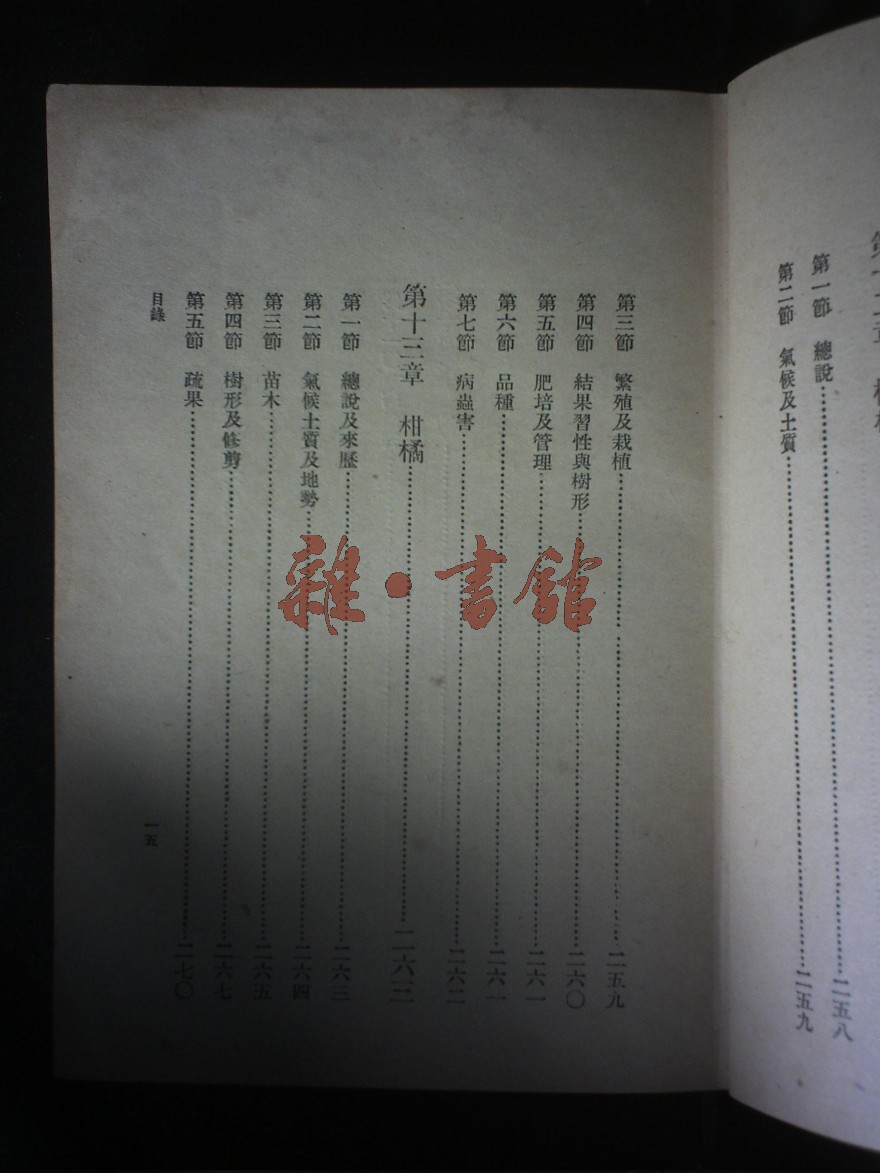 第一節 總說……二五八
第二節 氣候及土質……二五九
第三節 繁殖及栽植……二五九
第四節 結果習性與樹形……二六〇
第五節 肥培及管理……二六一
第六節 品種……二六一
第七節 病蟲害……二六二
第十三章 柑橘……二六三
第一節 總說及來歷……二六三
第二節 氣候土質及地勢……二六四
第三節 苗木……二六五
第四節 樹形及修剪……二六七
第五節 疏果……二七〇
目錄
一五
雜·書館